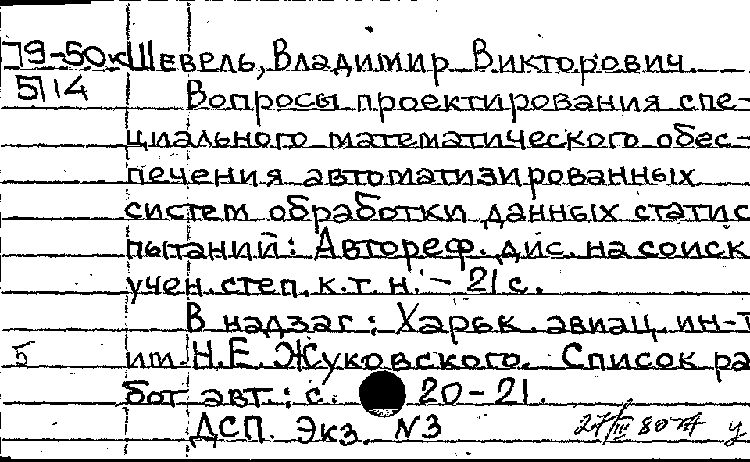 79-50к Шевель, Владимир Викторович.
5714 Вопросы проектирования спе-
циального математического обес-
печения автоматизированных
систем обработки данных статис
пытаний: Автореф. дис. на соиск
учен. степ. к.т.н. - 21 с.
В надзаг: Харьк. авиац. ин-т
Б им. Н.Е. Жуковского. Список ра
бот авт.: с. 20-21.
ДСП. Экз. №3